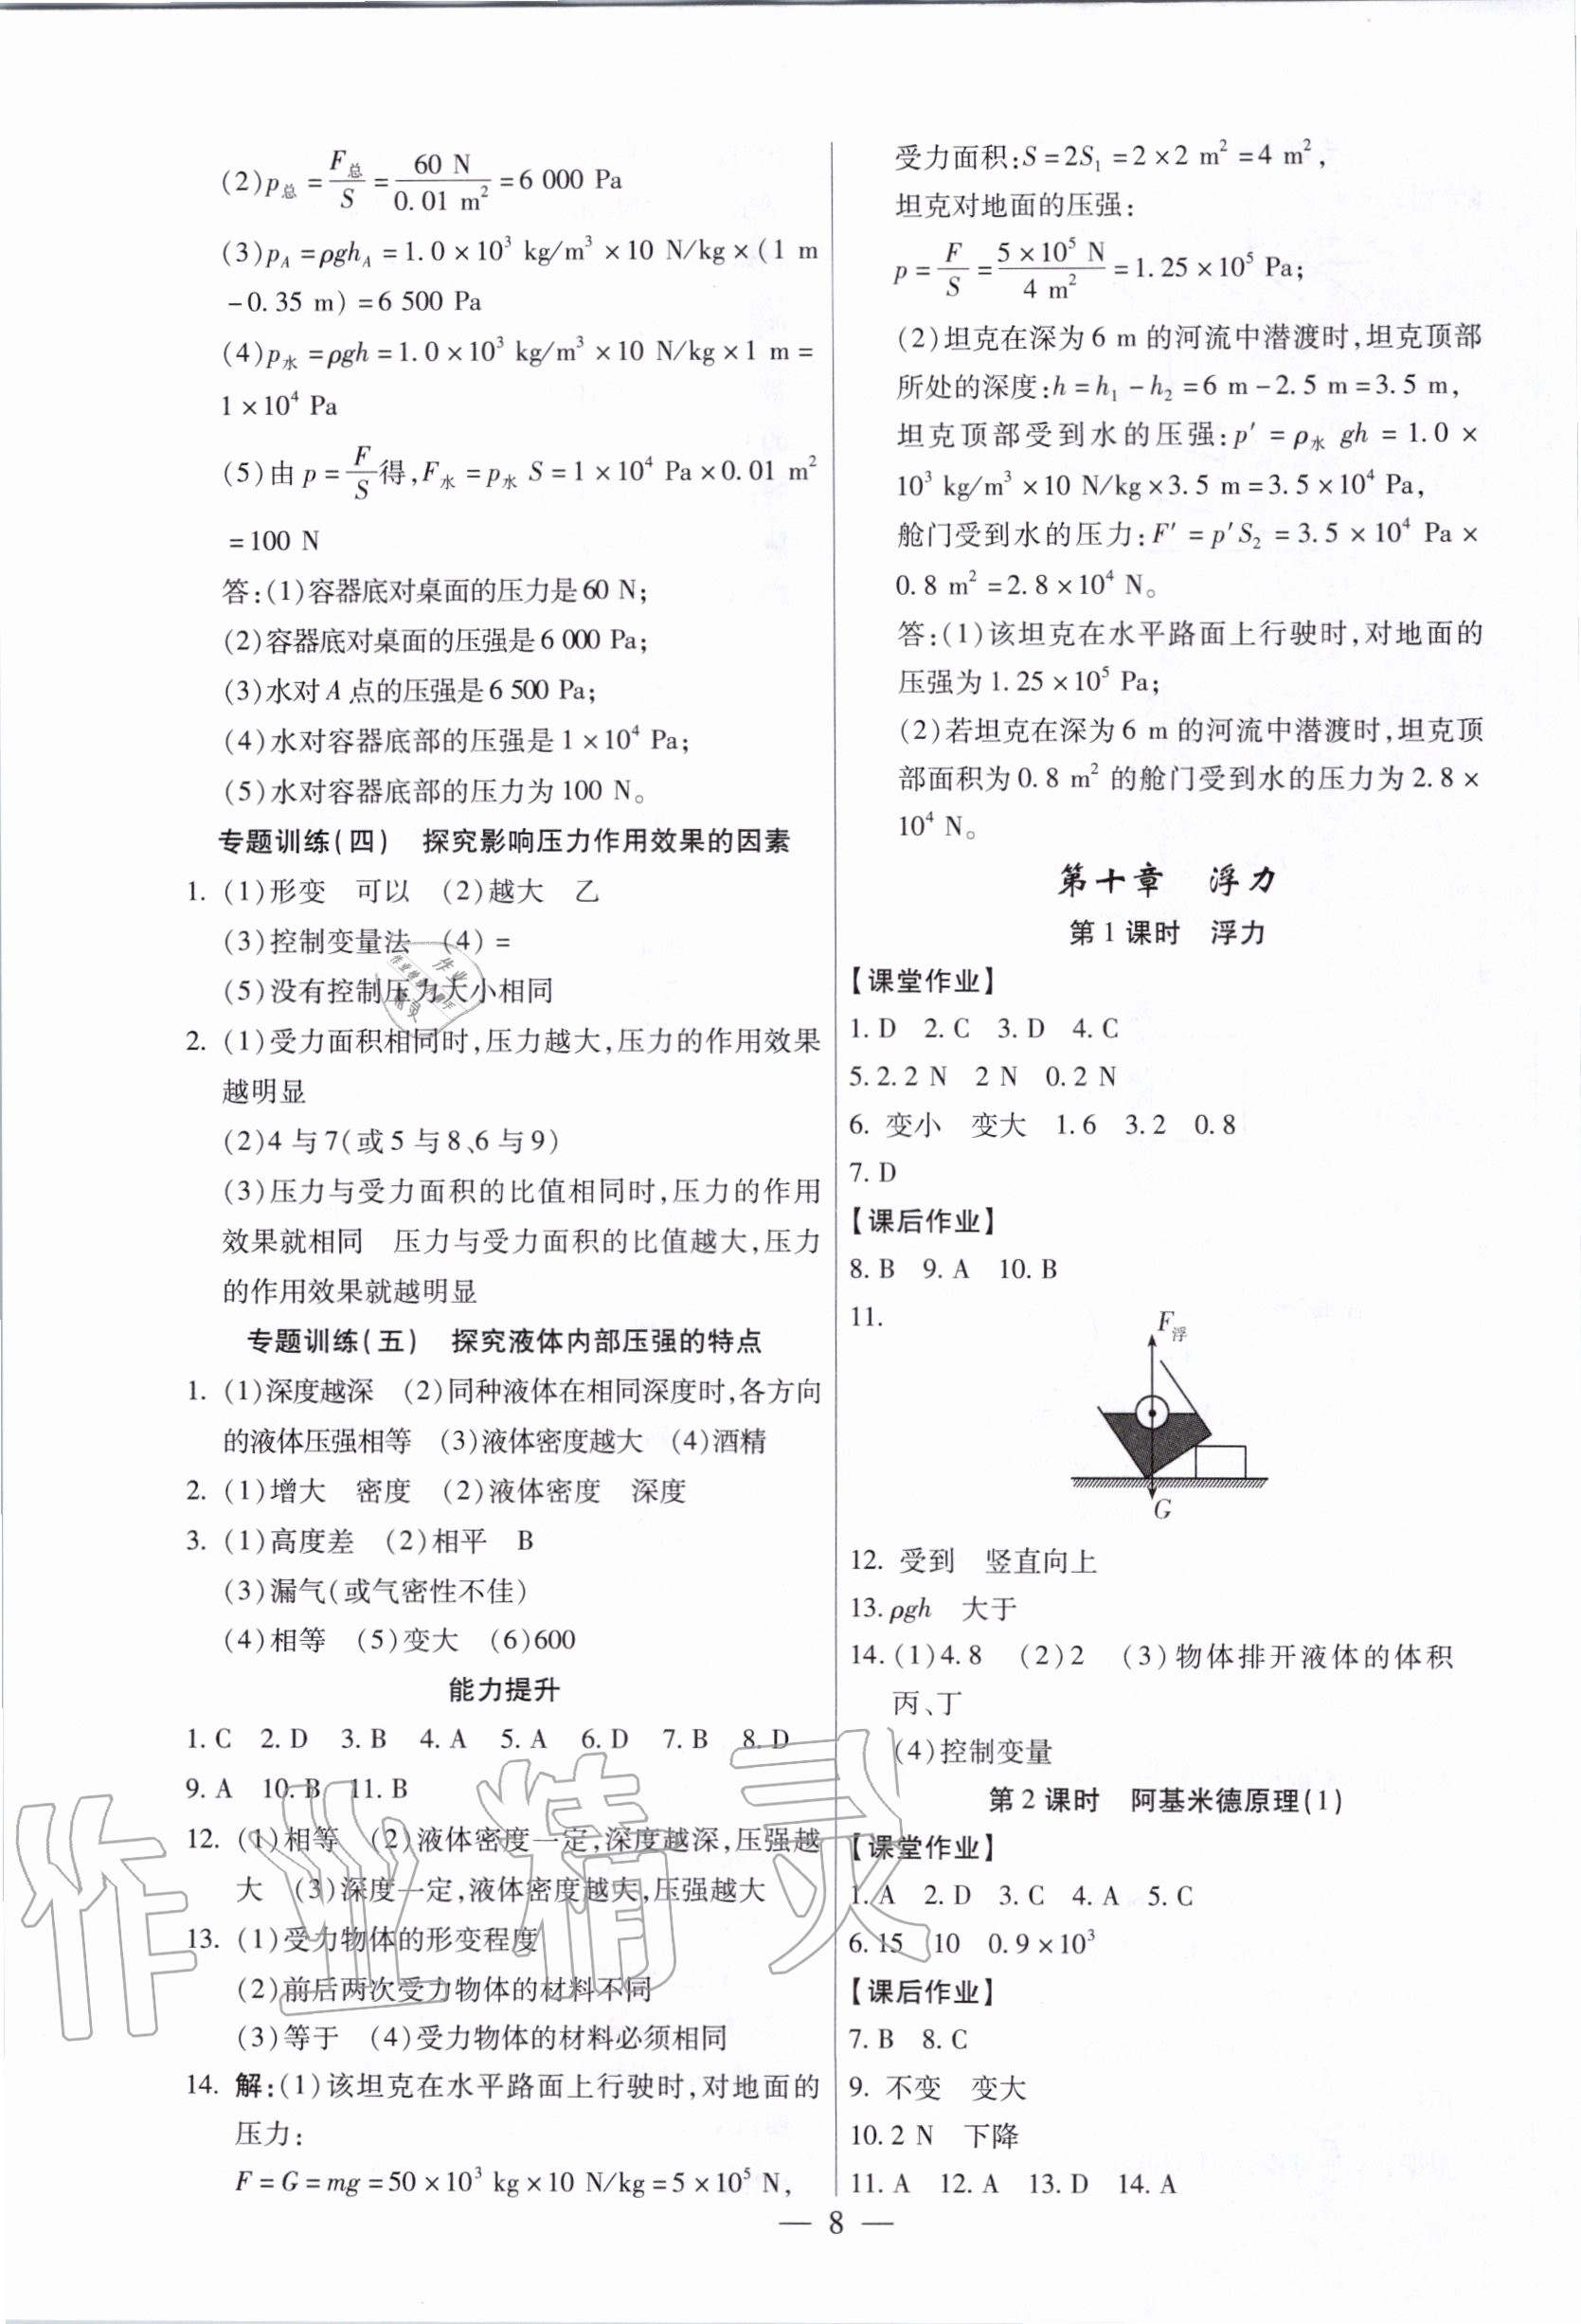 (2)p总=F总/S=60 N/0.01 m²=6 000 Pa
(3)pA=ρghA=1.0×10³ kg/m³×10 N/kg×(1 m
-0.35 m)=6 500 Pa
(4)p水=ρgh=1.0×10³ kg/m³×10 N/kg×1 m=
1×10⁴ Pa
(5)由 p=F/S得,F水=p水 S=1×10⁴ Pa×0.01 m²
=100 N
答:(1)容器底对桌面的压力是60 N;
(2)容器底对桌面的压强是6 000 Pa;
(3)水对A点的压强是6 500 Pa;
(4)水对容器底部的压强是1×10⁴ Pa;
(5)水对容器底部的压力为100 N。
专题训练(四) 探究影响压力作用效果的因素
1. (1)形变 可以 (2)越大 乙
(3)控制变量法 (4)=
(5)没有控制压力大小相同
2. (1)受力面积相同时,压力越大,压力的作用效果
越明显
(2)4与7(或5与8、6与9)
(3)压力与受力面积的比值相同时,压力的作用
效果就相同 压力与受力面积的比值越大,压力
的作用效果就越明显
专题训练(五) 探究液体内部压强的特点
1. (1)深度越深 (2)同种液体在相同深度时,各方向
的液体压强相等 (3)液体密度越大 (4)酒精
2. (1)增大 密度 (2)液体密度 深度
3. (1)高度差 (2)相平 B
(3)漏气(或气密性不佳)
(4)相等 (5)变大 (6)600
能力提升
1. C 2. D 3. B 4. A 5. A 6. D 7. B 8. D
9. A 10. B 11. B
12. (1)相等 (2)液体密度一定,深度越深,压强越
大 (3)深度一定,液体密度越大,压强越大
13. (1)受力物体的形变程度
(2)前后两次受力物体的材料不同
(3)等于 (4)受力物体的材料必须相同
14. 解:(1)该坦克在水平路面上行驶时,对地面的
压力:
F=G=mg=50×10³ kg×10 N/kg=5×10⁵ N,
受力面积:S=2S₁=2×2 m²=4 m²,
坦克对地面的压强:
p=F/S=5×10⁵ N/4 m²=1.25×10⁵ Pa;
(2)坦克在深为6 m的河流中潜渡时,坦克顶部
所处的深度:h=h₁-h₂=6 m-2.5 m=3.5 m,
坦克顶部受到水的压强:p′=ρ水 gh=1.0×
10³ kg/m³×10 N/kg×3.5 m=3.5×10⁴ Pa,
舱门受到水的压力:F′=p′S₂=3.5×10⁴ Pa×
0.8 m²=2.8×10⁴ N。
答:(1)该坦克在水平路面上行驶时,对地面的
压强为1.25×10⁵ Pa;
(2)若坦克在深为6 m的河流中潜渡时,坦克顶
部面积为0.8 m²的舱门受到水的压力为2.8×
10⁴ N。
第十章 浮力
第1课时 浮力
【课堂作业】
1. D 2. C 3. D 4. C
5. 2.2 N 2 N 0.2 N
6. 变小 变大 1.6 3.2 0.8
7. D
【课后作业】
8. B 9. A 10. B
11.
F浮
G
12. 受到 竖直向上
13. ρgh 大于
14. (1)4.8 (2)2 (3)物体排开液体的体积
丙、丁
(4)控制变量
第2课时 阿基米德原理(1)
【课堂作业】
1. A 2. D 3. C 4. A 5. C
6. 15 10 0.9×10³
【课后作业】
7. B 8. C
9. 不变 变大
10. 2 N 下降
11. A 12. A 13. D 14. A
— 8 —
作业精灵